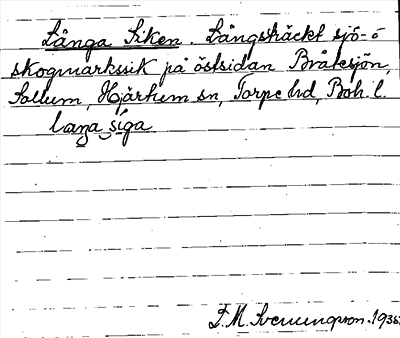 Långa Siken. Långsträckt sjö- o
skogmarkssik på östsidan Bråtesjön,
Sollum, Hjärtum sn, Torpe hd, Boh. l.
laŋa siga
F. M. Svenungsson. 1935.